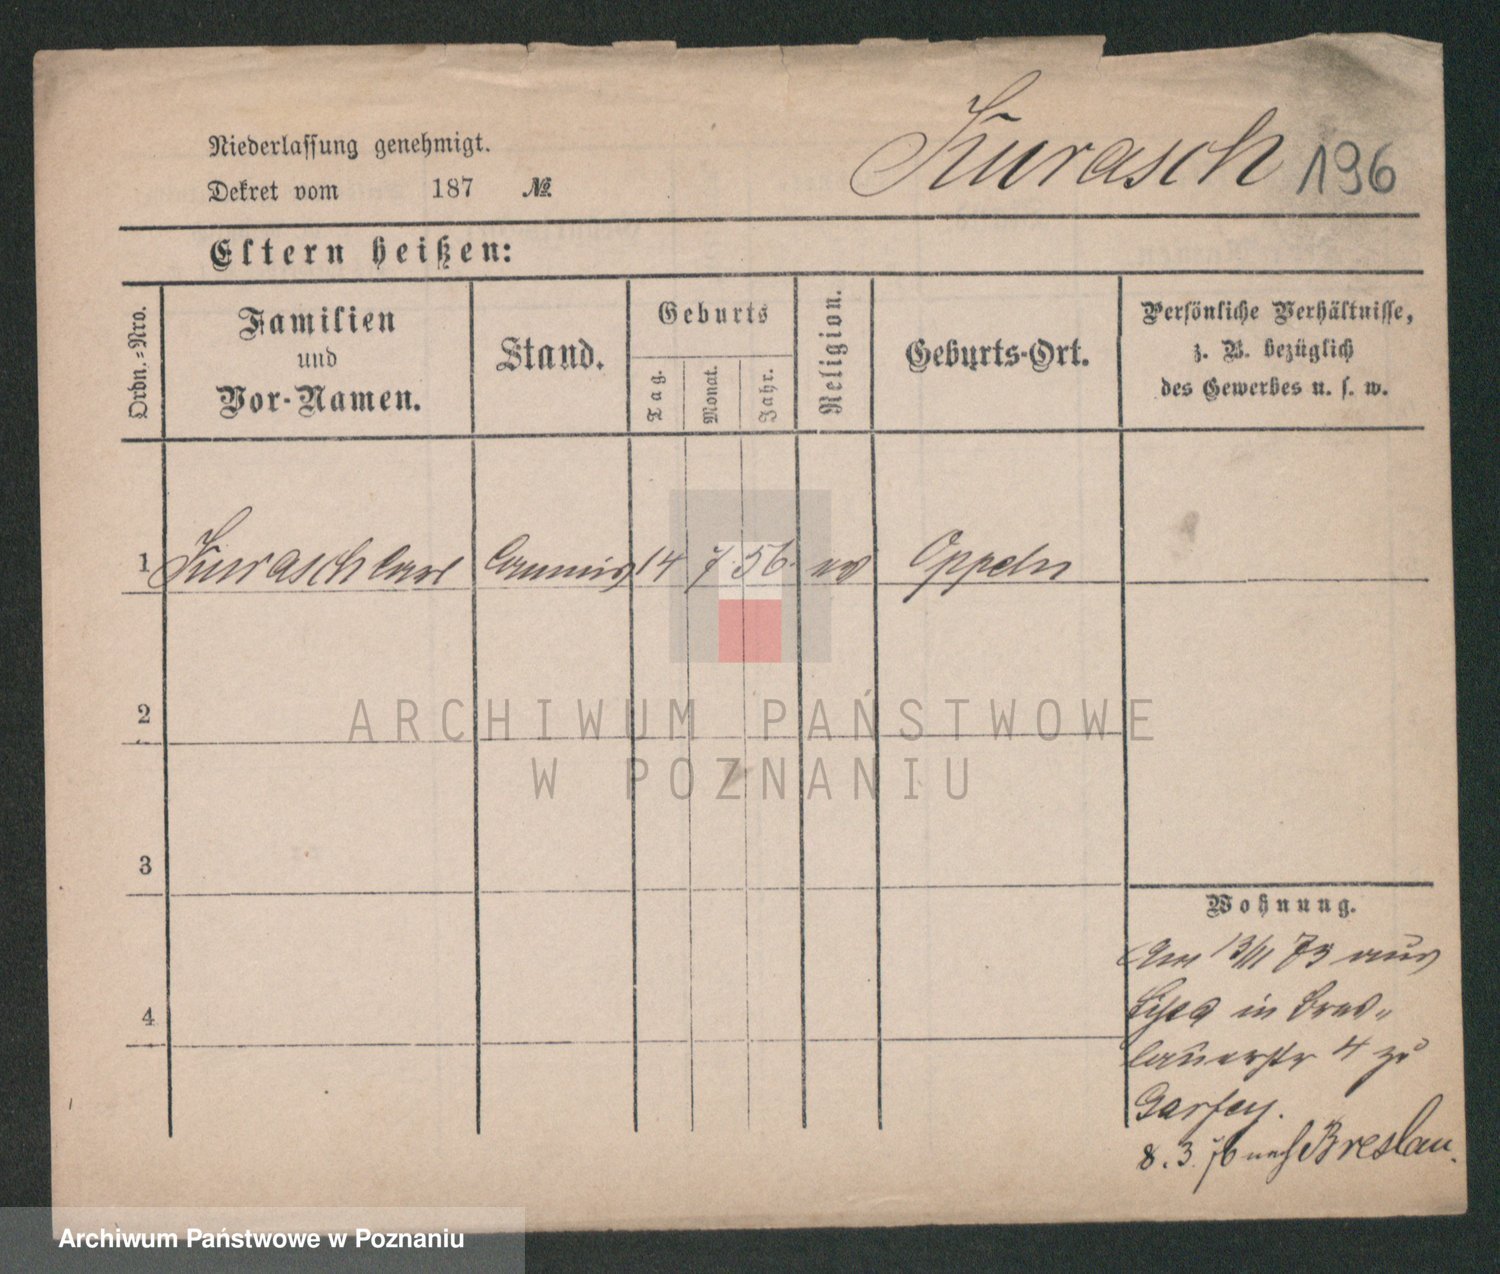 Niederlassung genehmigt.
Kurasch 196
Dekret vom 187 №
Eltern heißen:
Ordn.-Nro.
Familien
und
Vor-Namen.
Stand.
Geburts
Tag.
Monat.
Jahr.
Religion.
Geburts-Ort.
Persönliche Verhältnisse,
z. B. bezüglich
des Gewerbes u. s. w.
1 Kurasch Carl Commis 14 7 56. ev Oppeln
2
3
4
Wohnung.
Am 13/11 73 aus
Lissa in Bres„
lauerstr 4 zu
8. 3. 76 nach Breslau.
ARCHIWUM PAŃSTWOWE
W POZNANIU
Archiwum Państwowe w Poznaniu